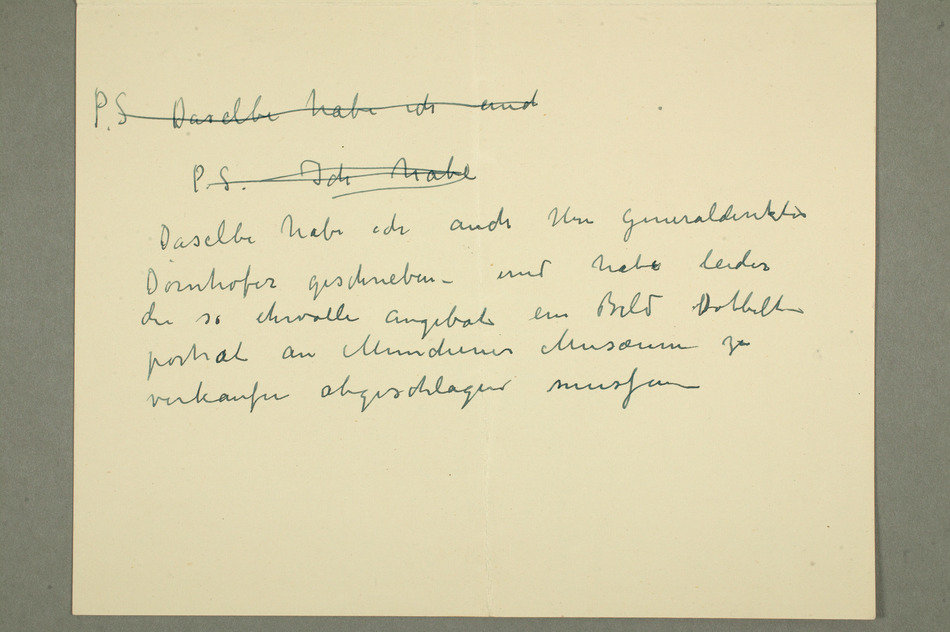 P.S Daselbe habe ich auch
P.S. Ich habe
Daselbe habe ich auch Hern Generaldirektor
Dörnhofer geschrieben - und habe leider
die so ehrvolle angebot ein Bild Dobbelt
portrat an Münchener Museum zu
verkaufen abgeschlagen mussen